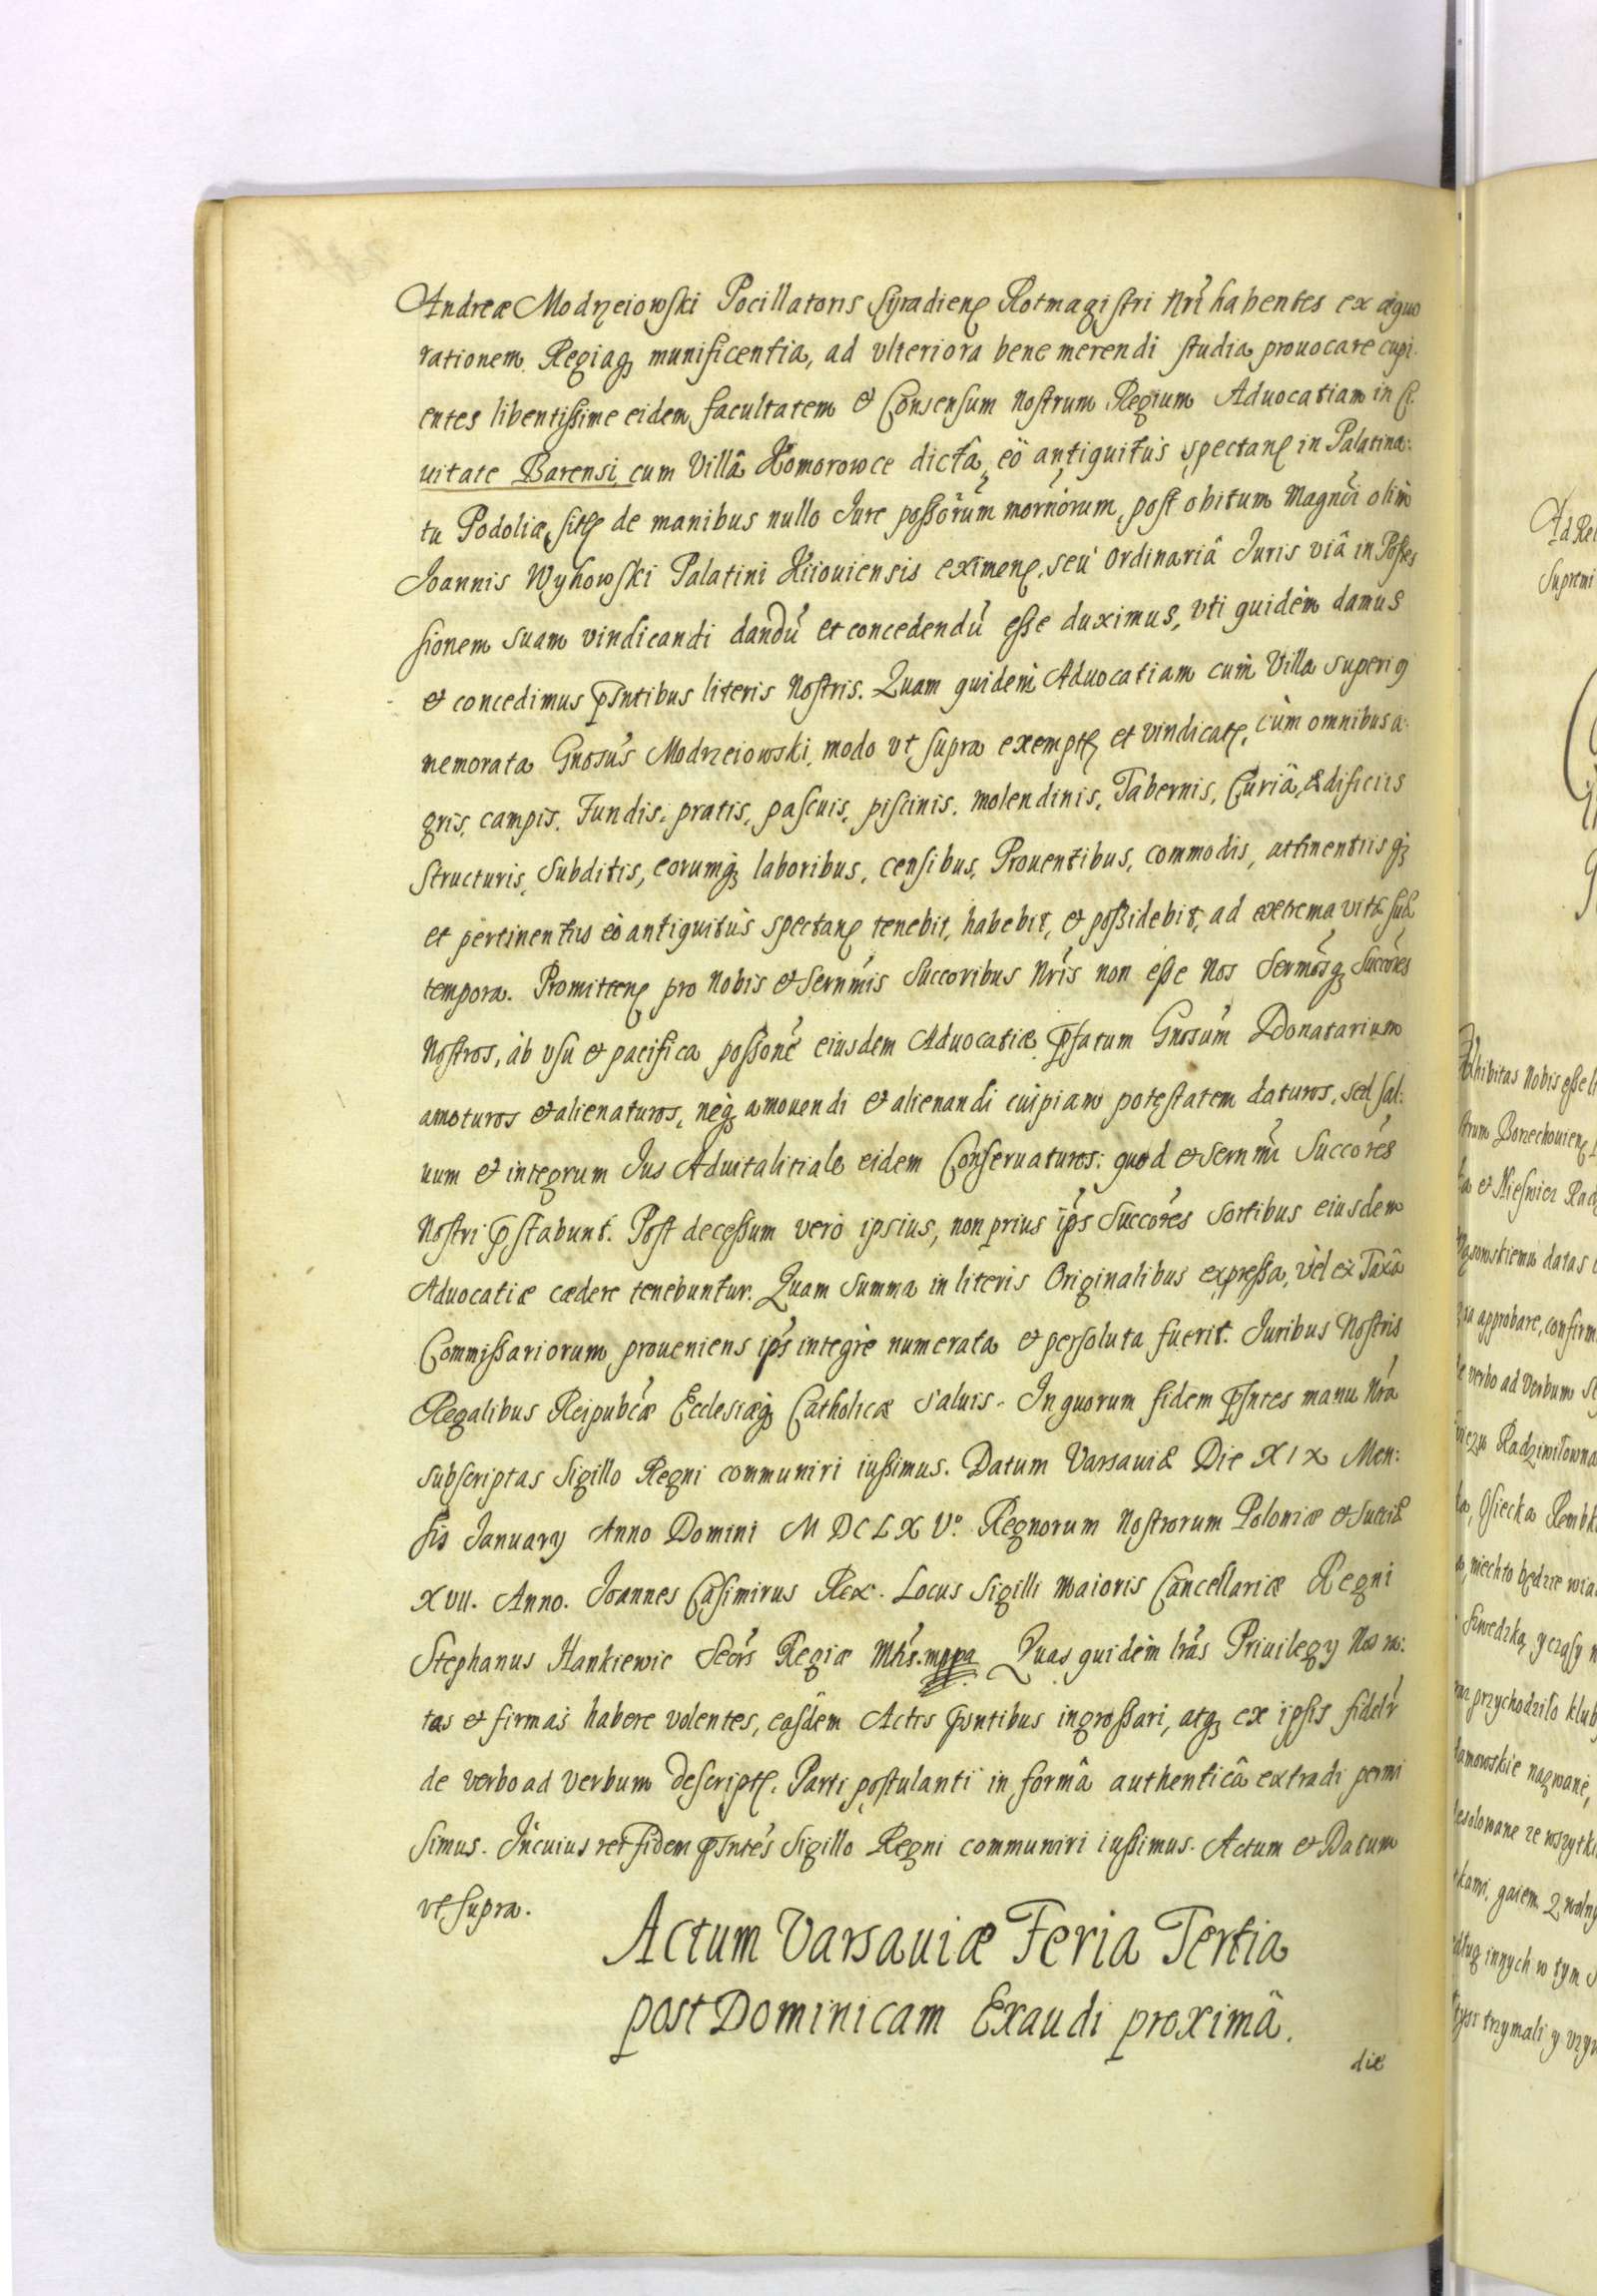 Andreæ Modrzeiowski Pocillatoris Syradien Rotmagistri Nri habentes ex æquo
rationem Regiaq munificentia, ad vlteriora bene merendi studia prouocare cupi-
entes libentissime eidem facultatem et Consensum Nostrum Regium Aduocatiam in Ci-
uitate Barensi, cum Villâ Komorowce dictâ, eò antiquitùs spectan in Palatina:
tu Podoliæ sit de manibus nullo Jure possorum mornorum, post obitum Magnci olim
Joannis Wyhowski Palatini Kiiouiensis eximen, seu ordinariâ Juris viâ in Posses
sionem suam vindicandi dandū et concedendū esse duximus, vti quidem damus
et concedimus pntibus literis Nostris. Quam quidem Aduocatiam cum Villa superiq
nemorata Gnosus Modrzeiowski, modo vt supra exempt et vindicat, cum omnibus a:
gris, campis, Fundis, pratis, pascuis, piscinis, molendinis, Tabernis, Curiâ, Ædificiis
structuris, Subditis, eorumq laboribus, censibus, Prouentibus, commodis, attinentiisq
et pertinentiis eò antiquitùs spectan tenebit, habebit, et possidebit, ad extrema vitæ suæ
tempora. Promitten pro Nobis et Sernmis Succoribus Nris non esse Nos Sermosq Succores
Nostros, ab vsu et pacifica possone eiusdem Aduocatiæ pfatum Gnosum Donatarium
amoturos et alienaturos, neq amouendi et alienandi cuipiam potestatem daturos, sed sal:
uum et integrum Jus Aduitalitiale eidem Conseruaturos: quod et Sernmi Succores
Nostri pstabunt. Post decessum verò ipsius, non prius ips Succores sortibus eiusdem
Aduocatiæ cædere tenebuntur. Quam summa in literis Originalibus expressa, vel ex Taxâ
Commissariorum proueniens ips integrè numerata et persoluta fuerit. Juribus Nostris
Regalibus Reipubcæ Ecclesiæq Catholicæ saluis. In quorum fidem pntes manu Nra
subscriptas Sigillo Regni communiri iussimus. Datum Varsauiæ Die XIX Men:
sis January Anno Domini MDCLXVo Regnorum Nostrorum Poloniæ et Sueciæ
XVII. Anno. Joannes Casimirus Rex. Locus Sigilli maioris Cancellariæ Regni
Stephanus Hankiewic Secrs Regiæ Mtis. mppa Quas quidem lras Priuilegy Nos ra:
tas et firmas habere volentes, easdem Actis pntibus ingrossari, atq ex ipsis fidelr
de verbo ad verbum descript. Parti postulanti in formâ authenticâ extradi permi
simus. In cuius rei fidem pntes Sigillo Regni communiri iussimus. Actum et Datum
vt supra.
Actum Varsauiæ Feria Tertia
post Dominicam Exaudi proximâ.
die
Ad Rel
Supremi
Exhibitas Nobis esse li
strum Borzechouien
ta et Nieswicz Rad
datas
ria approbare, confirm
de verbo ad Verbum
Radziwiłowna
Osiecka Rembk
niechto będzie wia
Szwedzką, y czasy
przychodziło klub
damowskie nazwane,
desolowane ze wszytki
kami, gaiem
dług innych w tym
trzymali y vzyw